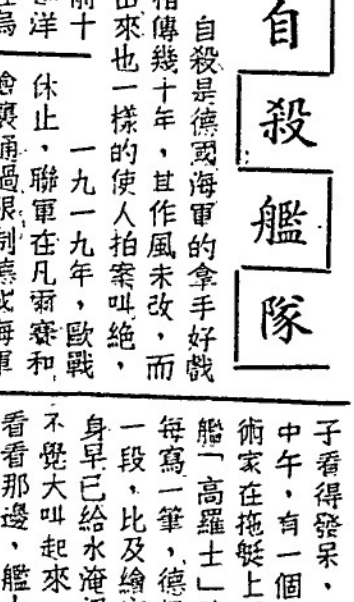 自殺艦隊
自殺是德國海軍的拿手好戲
相傳幾十年，其作風未改，而
出來也一樣的使人拍案叫絕，
前十
洋
一九一九年，歐戰
休止，聯軍在凡爾賽和
通過限制德海軍
子看得發呆，
中午，有一個
術家在拖艇上
艦「高羅士」
每寫一筆，德
一段，比及繪
身早已給水淹
不覺大叫起來
看看那邊，艦